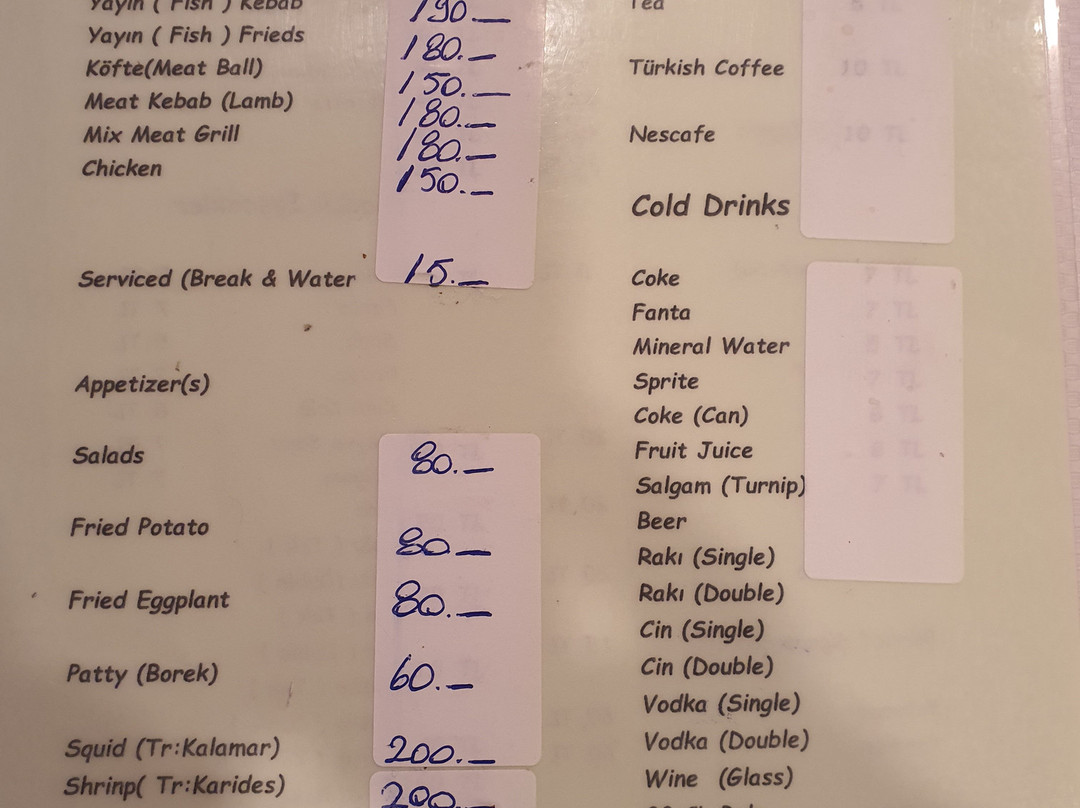 Yayın ( Fish ) Kebab 190.—
Yayın ( Fish ) Frieds 180.—
Köfte(Meat Ball) 150.—
Meat Kebab (Lamb) 180.—
Mix Meat Grill 180.—
Chicken 150.—
Serviced (Break & Water 15.—
Appetizer(s)
Salads 80.—
Fried Potato 80.—
Fried Eggplant 80.—
Patty (Borek) 60.—
Squid (Tr:Kalamar) 200.—
Shrinp( Tr:Karides) 200.—
Tea
Türkish Coffee 10 TL
Nescafe 10 TL
Cold Drinks
Coke 7 TL
Fanta 7 TL
Mineral Water TL
Sprite 7 TL
Coke (Can) TL
Fruit Juice TL
Salgam (Turnip) 7 TL
Beer
Rakı (Single)
Rakı (Double)
Cin (Single)
Cin (Double)
Vodka (Single)
Vodka (Double)
Wine (Glass)